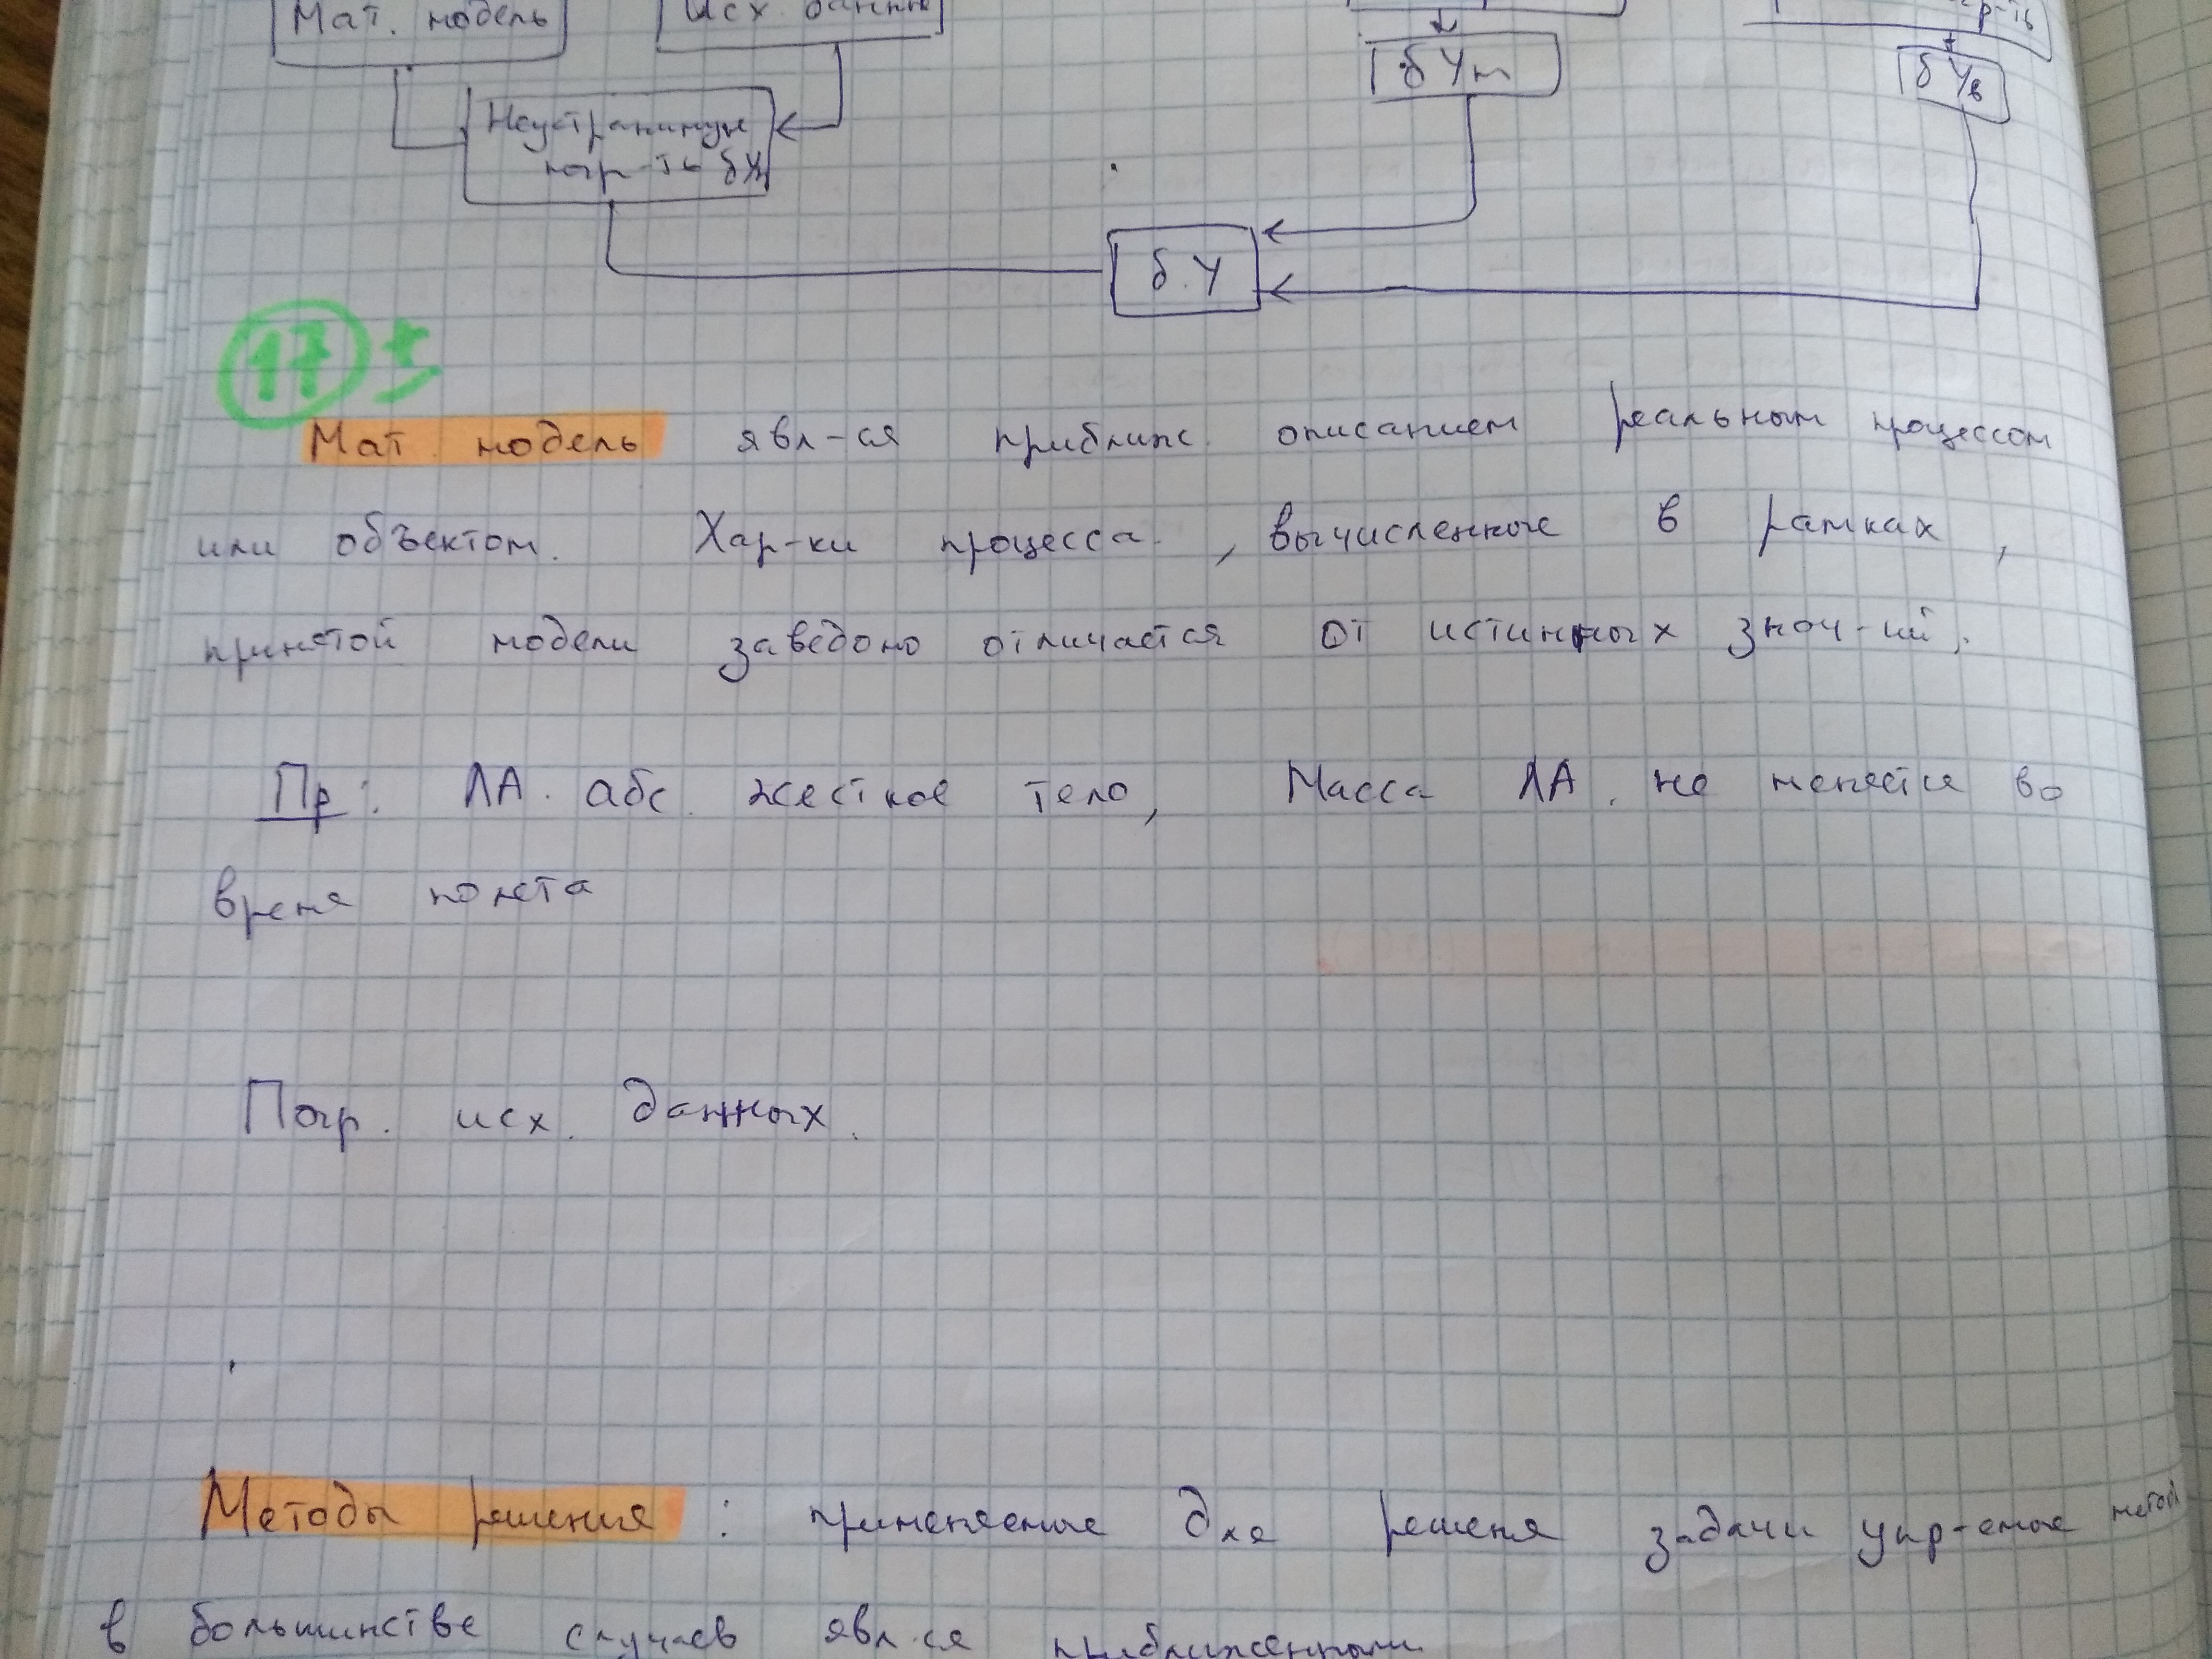 Мат. модель Исх. данны
р-ть
δ Yм δ Yв
Неустранимую
погр-ть δ Yн
δ. Y
17 ±
Мат модель явл-ся приближ. описанием реальным процессом
или объектом. Хар-ки процесса , вычисленные в рамках ,
принятой модели заведоно отличается от истинных знач-ий.
Пр: ЛА. абс. жесткое тело, Масса ЛА. не меняется во
время полета
Погр. исх. данных.
Методы решения : применяемые для решеня задачи упр-емое метод
в большинстве случаев явл-ся приближенными